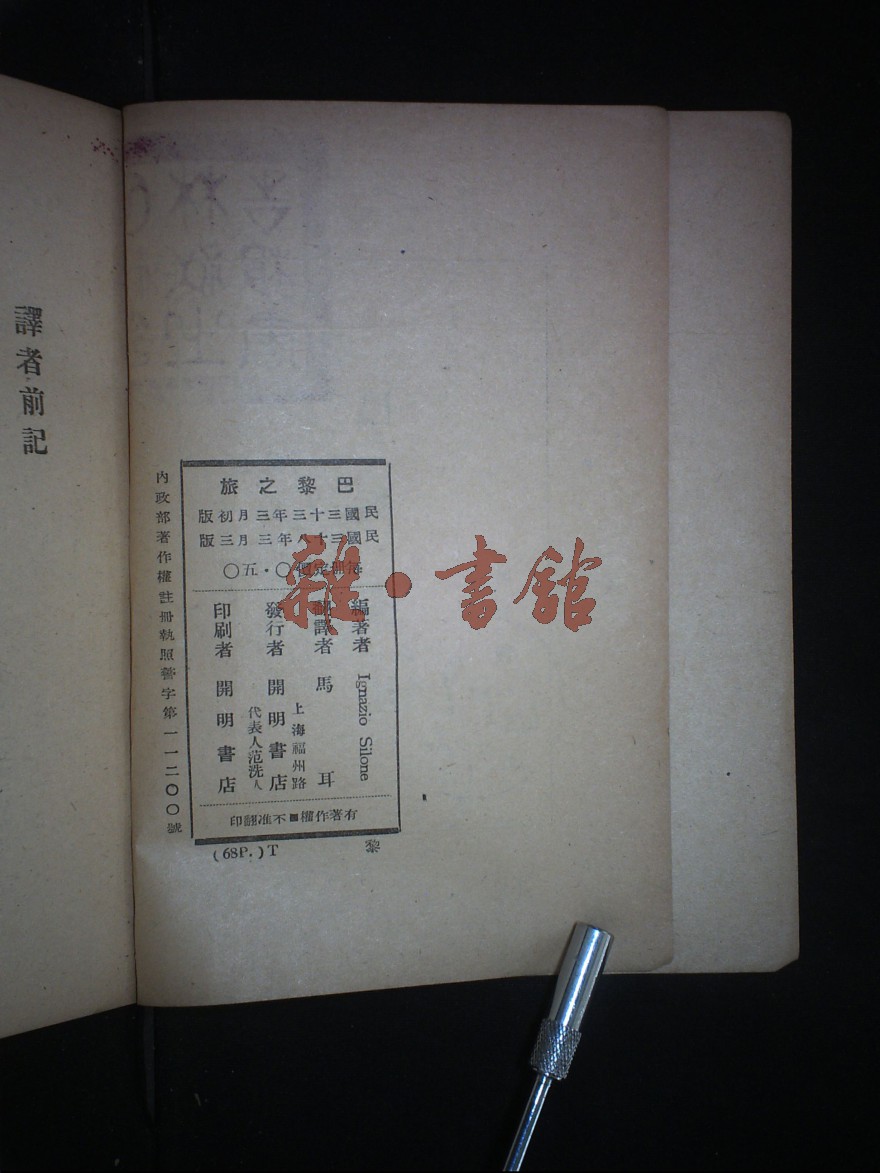 巴黎之旅
民國三十三年三月初版
民國三十八年三月三版
每册定價〇・五〇
編著者 Ignazio Silone
翻譯者 馬耳
發行者 開明書店
上海福州路
代表人范洗人
印刷者 開明書店
有著作權■不准翻印
(68P.)T 黎
內政部著作權註冊執照警字第一一二〇〇號
譯者前記
雜・書館